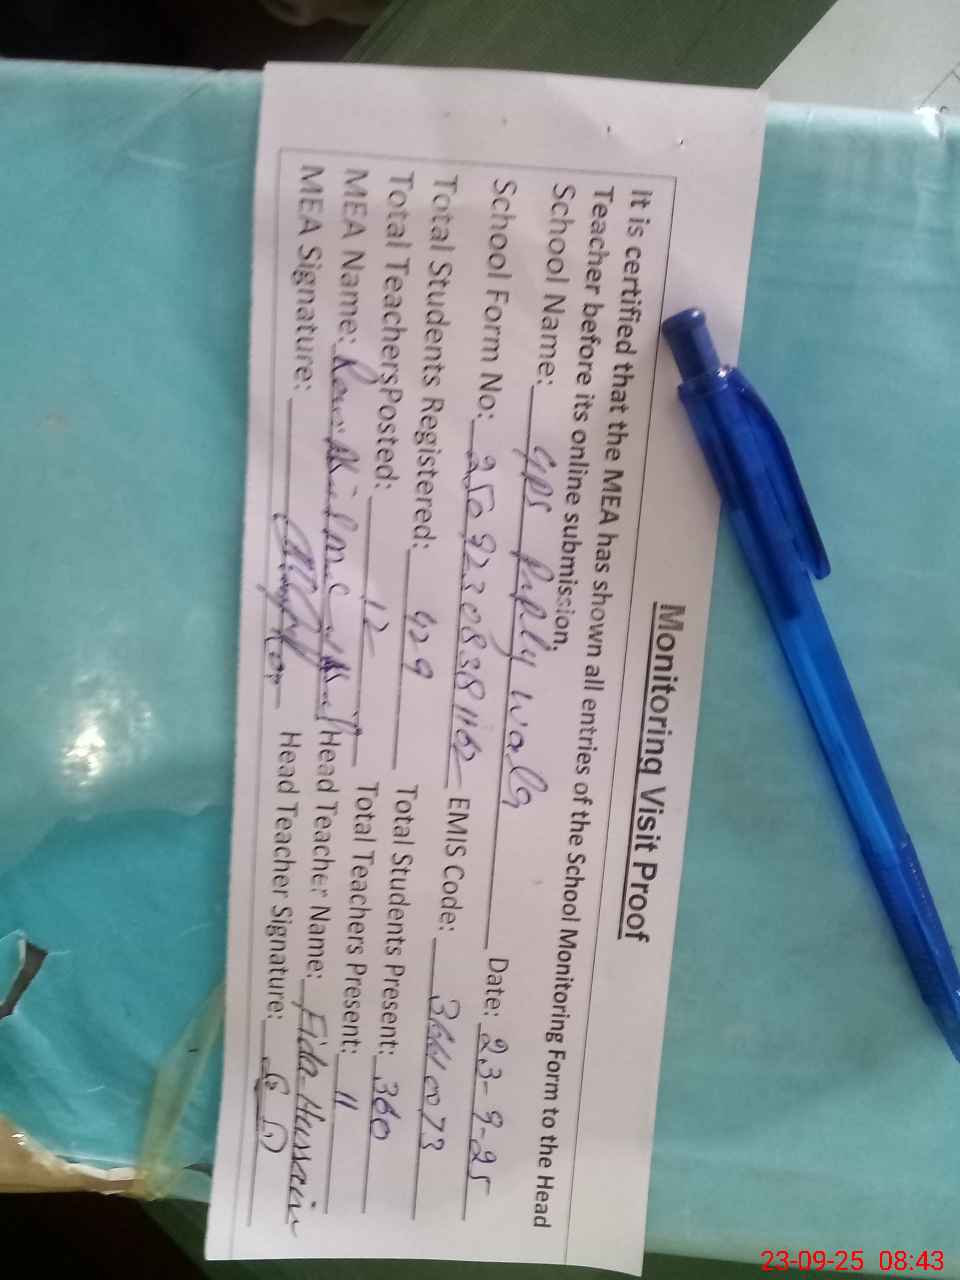 Monitoring Visit Proof
It is certified that the MEA has shown all entries of the School Monitoring Form to the Head
Teacher before its online submission.
School Name: GPS Date: 23-9-25
School Form No: EMIS Code:
Total Students Registered: 429 Total Students Present: 360
Total TeachersPosted: 12 Total Teachers Present: 11
MEA Name: Head Teacher Name: Fida Hussain
MEA Signature: Head Teacher Signature:
23-09-25 08:43